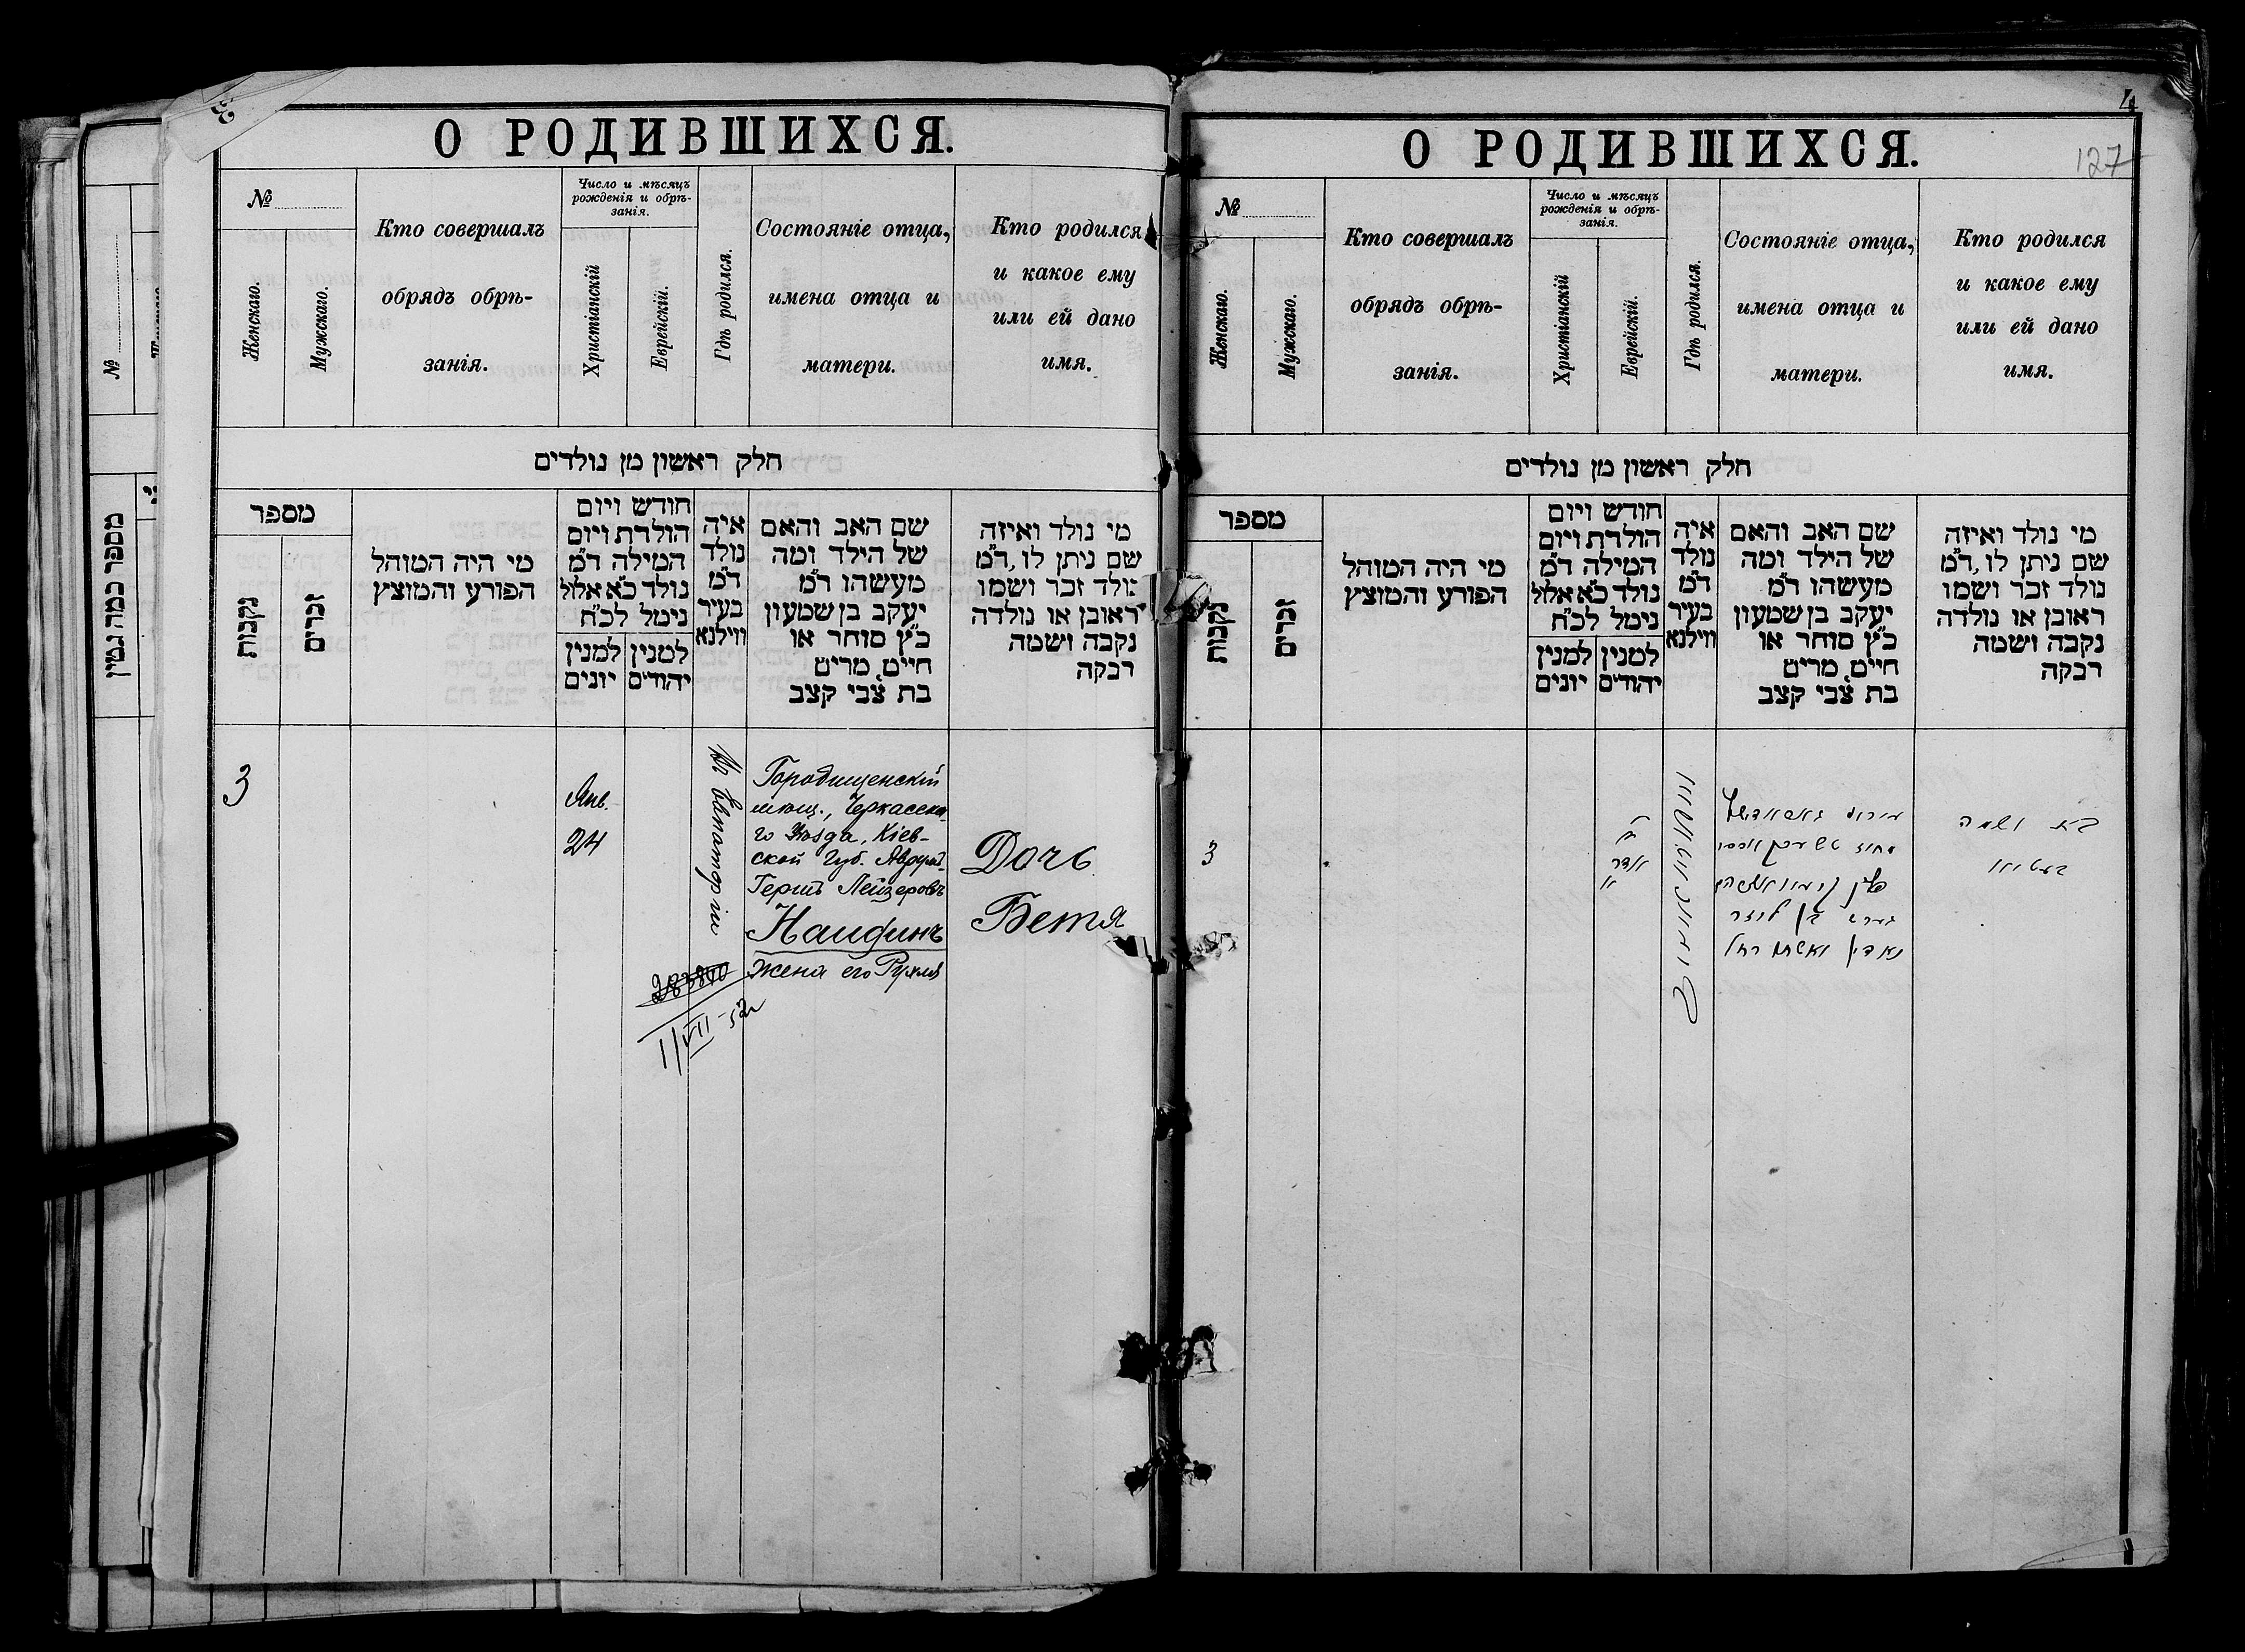 3
О РОДИВШИХСЯ.
№
Женскаго.
Мужскаго.
Кто совершалъ
обрядъ обрѣ-
занія.
Число и мѣсяцъ
рожденія и обрѣ-
занія.
Христіанскій
Еврейскій.
Гдѣ родился.
Состояніе отца,
имена отца и
матери.
Кто родился
и какое ему
или ей дано
имя.
חלק ראשון מן נולדים
מספר
נקבות
זכרים
מי היה המוהל
הפורע והמוצץ
חודש ויום
הולדת ויום
המילה ד"מ
נולד כ"א אלול
נימל לכ"ח
למנין
יונים
למנין
יהודים
איה
נולד
ד"מ
בעיר
ווילנא
שם האב והאם
של הילד ומה
מעשהו ד"מ
יעקב בן שמעון
כ"ץ סוחר או
חייט, מרים
בת צבי קצב
מי נולד ואיזה
שם ניתן לו, ד"מ
נולד זכר ושמו
ראובן או נולדה
נקבה ושמה
רבקה
3
Янв.
24
Въ Евпаторіи
Городищенскій
мѣщ., Черкасска-
го Уѣзда, Кіев-
ской Губ. Аврумъ-
Гершъ Лейзеровъ
Наидинъ
жена его Рухля
Дочь
Бетя
1/VII-52
4
О РОДИВШИХСЯ.
127
№
Женскаго.
Мужскаго.
Кто совершалъ
обрядъ обрѣ-
занія.
Число и мѣсяцъ
рожденія и обрѣ-
занія.
Христіанскій
Еврейскій.
Гдѣ родился.
Состояніе отца,
имена отца и
матери.
Кто родился
и какое ему
или ей дано
имя.
חלק ראשון מן נולדים
מספר
נקבות
זכרים
מי היה המוהל
הפורע והמוצץ
חודש ויום
הולדת ויום
המילה ד"מ
נולד כ"א אלול
נימל לכ"ח
למנין
יונים
למנין
יהודים
איה
נולד
ד"מ
בעיר
ווילנא
שם האב והאם
של הילד ומה
מעשהו ד"מ
יעקב בן שמעון
כ"ץ סוחר או
חייט, מרים
בת צבי קצב
מי נולד ואיזה
שם ניתן לו, ד"מ
נולד זכר ושמו
ראובן או נולדה
נקבה ושמה
רבקה
3
אדר
א
בת ושמה
הערש בן ליזר
נאדין ואשתו רחל
№
מספר כמה גטין